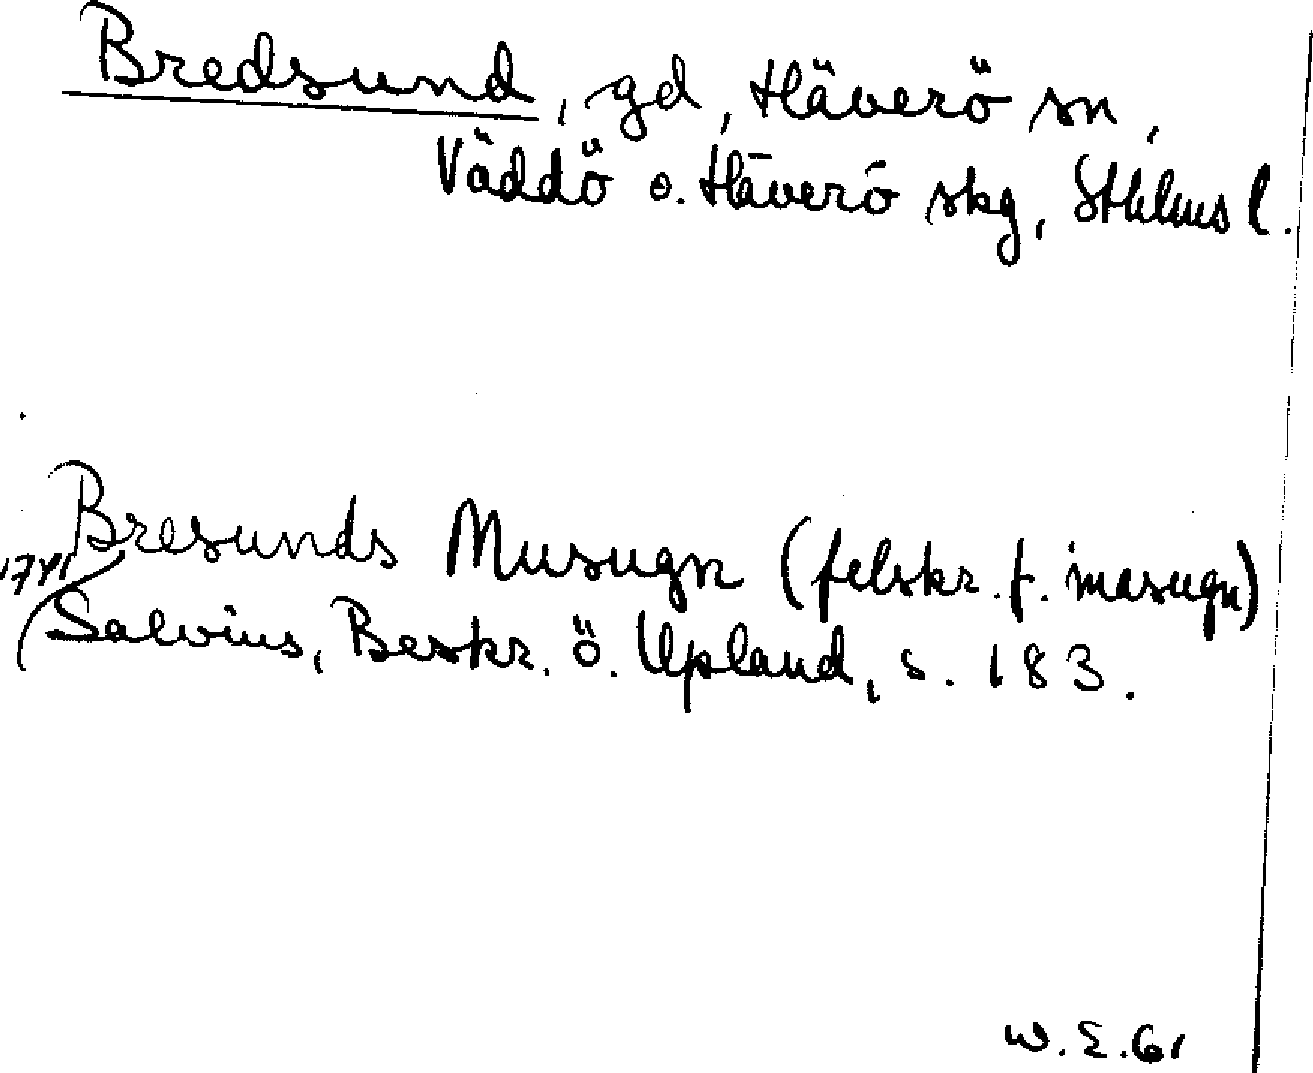 Bredsund, gd, Häverö sn,
Väddö o. Häverö skg, Sthlms l.
Bresunds Musugn (felskr. f. masugn)
1741
Salvius, Beskr. ö. Upland, s. 183.
W. E. Gr